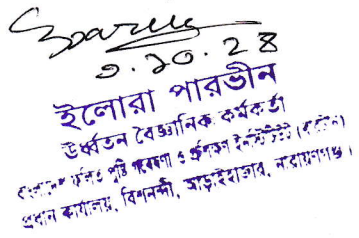 ৩.১০.২৪
ইলোরা পারভীন
ঊর্ধ্বতন বৈজ্ঞানিক কর্মকর্তা
বাংলাদেশ ফলিত পুষ্টি গবেষণা ও প্রশিক্ষণ ইনস্টিটিউট (বারটান)
প্রধান কার্যালয়, বিশনন্দী, আড়াইহাজার, নারায়ণগঞ্জ।